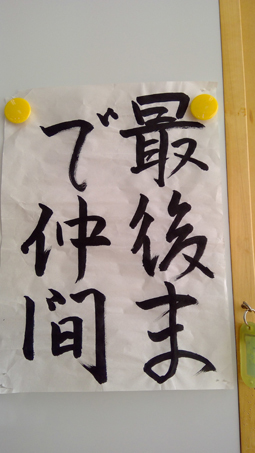 最後ま
で仲間